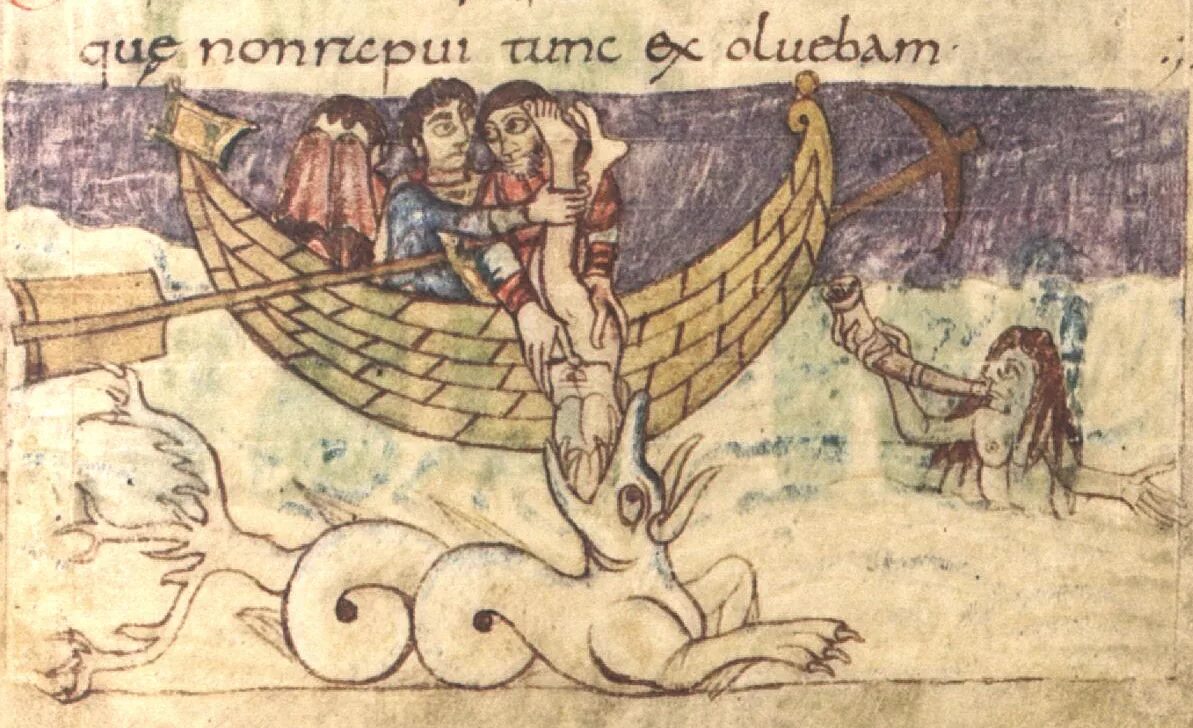 quę non rapui tunc ex oluebam·